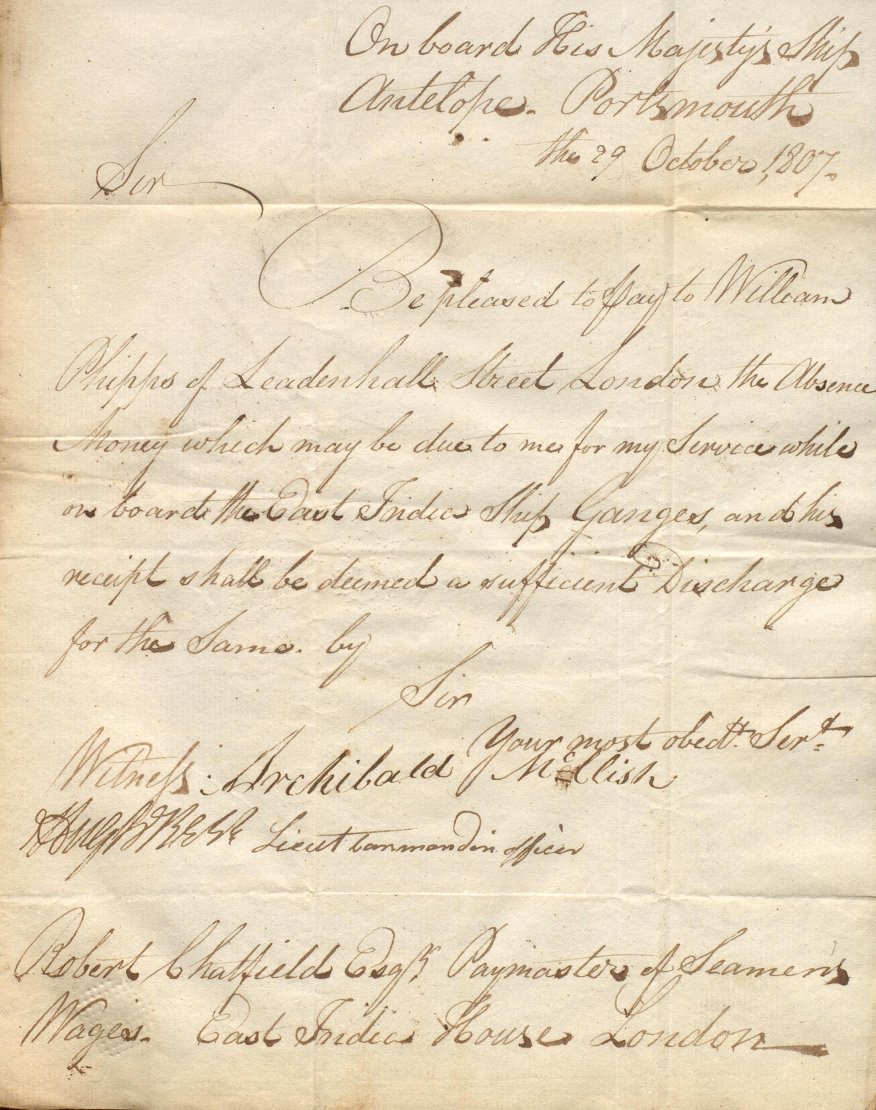 On board His Majesty's Ship
Antelope. Portsmouth
the 29 October, 1807.
Sir
Be pleased to pay to William
Phipps of Leadenhall Street London the Absence
Money which may be due to me for my Service while
on board the East India Ship Ganges, and his
receipt shall be deemed a sufficient Discharge
for the Same. by
Sir
Your most obedt. Servt.
Witness. Archibald McClish
Hugh Lieut Commandin officer
Robert Chatfield Esqr. Paymaster of Seamen's
Wages. East India House London